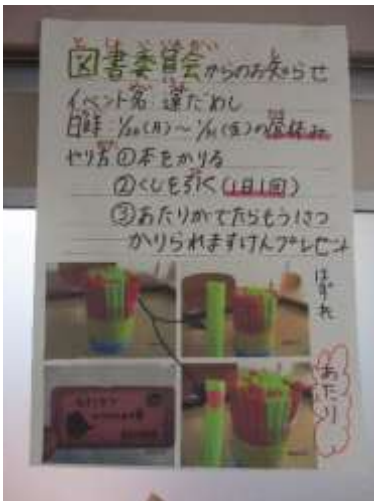 図書委員会からのお知らせ
イベント名 運だめし
日時 1/20(月)~1/31(金)の昼休み
やり方 ①本をかりる
②くじを引く(1日1回)
③あたりがでたらもう1さつ
かりられますけんプレゼント
はずれ
あたり